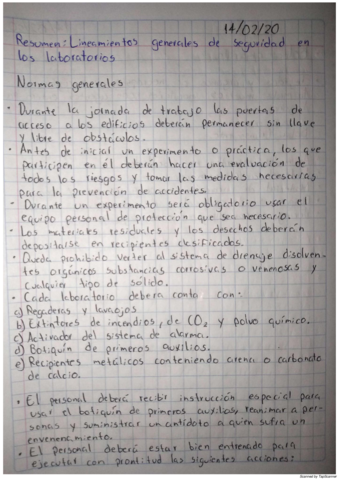 14/02/20
Resumen: Lineamientos generales de seguridad en
los laboratorios
Normas generales
· Durante la jornada de trabajo las puertas de
acceso a los edificios deberán permanecer sin llave
y libre de obstáculos.
· Antes de iniciar un experimento o práctica, los que
participen en él deberán hacer una evaluación de
todos los riesgos y tomar las medidas necesarias
para la prevención de accidentes.
· Durante un experimento será obligatorio usar el
equipo personal de protección que sea necesario.
· Los materiales residuales y los desechos deberán
depositarse en recipientes clasificados.
· Queda prohibido verter al sistema de drenaje disolven-
tes orgánicos substancias corrosivas o venenosas y
cualquier tipo de sólido.
· Cada laboratorio deberá contar con:
a) Regaderas y lavaojos
b) Extintores de incendios, de CO2 y polvo químico.
c) Activador del sistema de alarma.
d) Botiquín de primeros auxilios.
e) Recipientes metálicos conteniendo arena o carbonato
de calcio.
· El personal deberá recibir instrucción especial para
usar el botiquín de primeros auxilios, reanimar a per-
sonas y suministrar un antídoto a quien sufra un
envenenamiento.
· El personal deberá estar bien entrenado para
ejecutar con prontitud las siguientes acciones:
Scanned by TapScanner